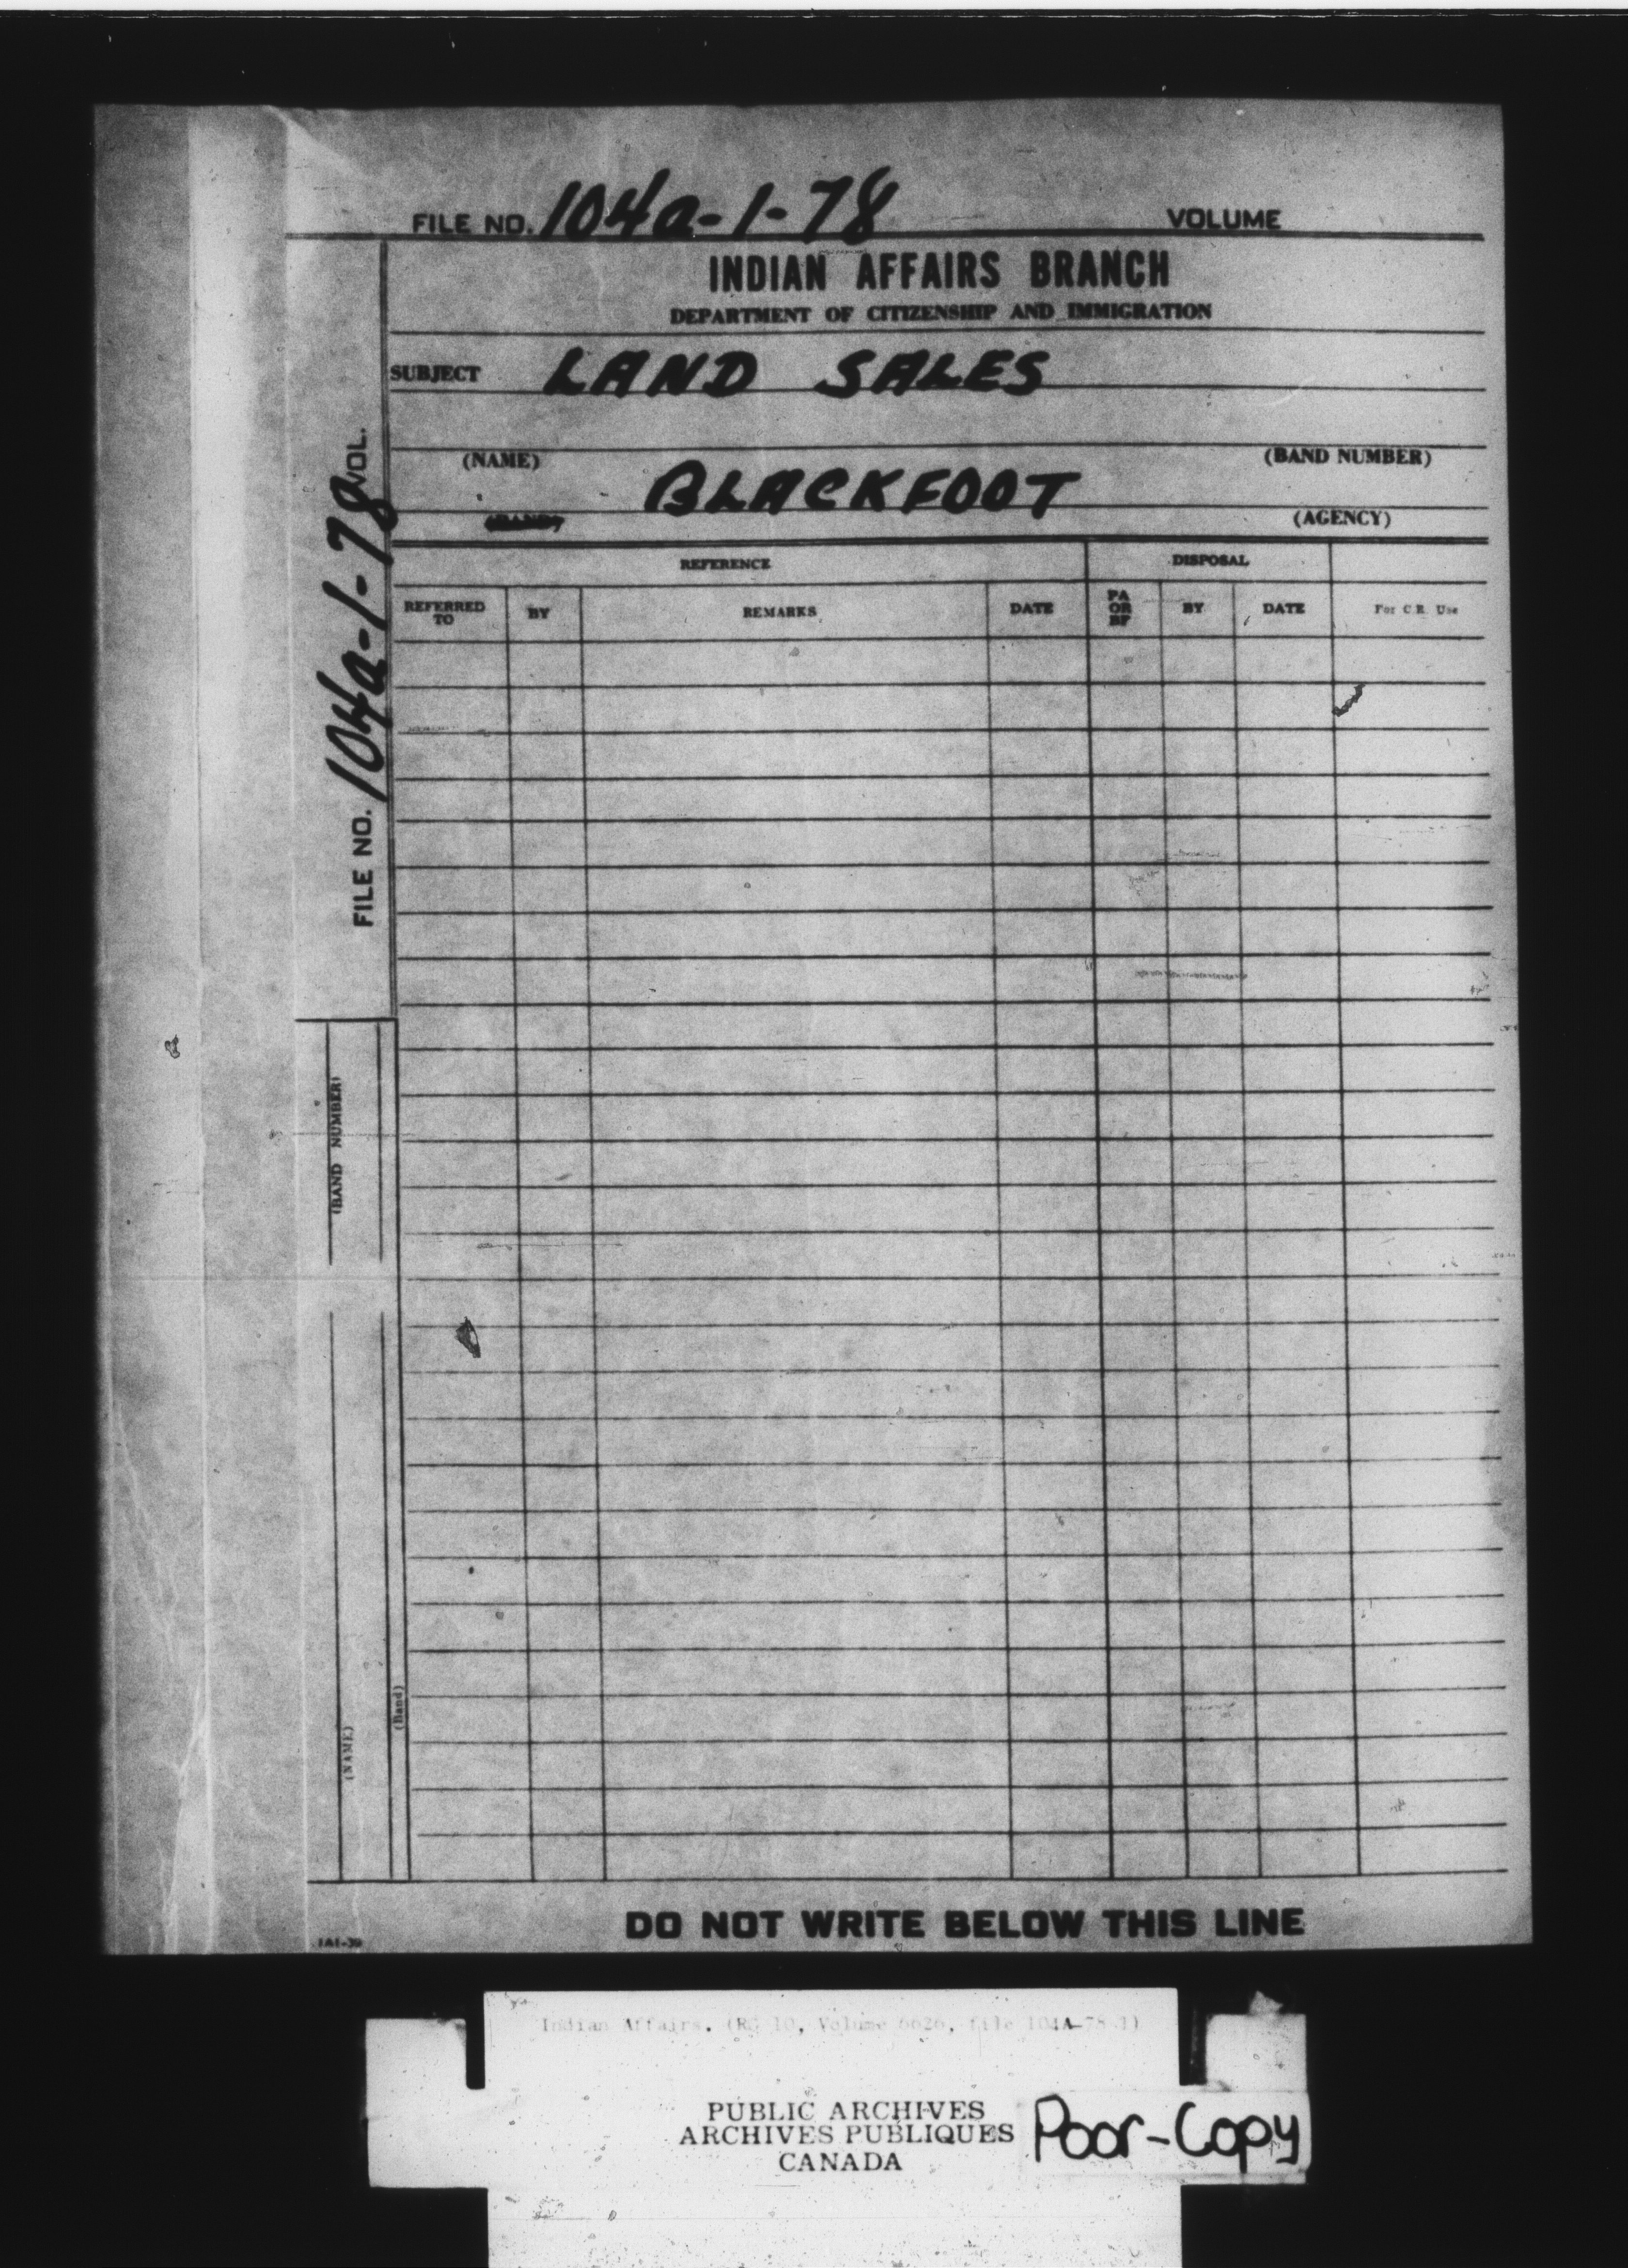 FILE NO. 104a-1-78 VOLUME
INDIAN AFFAIRS BRANCH
DEPARTMENT OF CITIZENSHIP AND IMMIGRATION
SUBJECT LAND SALES
(NAME) (BAND NUMBER)
BLACKFOOT
(BAND) (AGENCY)
REFERENCE DISPOSAL
REFERRED TO BY REMARKS DATE PA OR BF BY DATE For C.R. Use
FILE NO. 104a-1-78 VOL.
(BAND NUMBER)
(NAME)
(Band)
DO NOT WRITE BELOW THIS LINE
IA1-39
Indian Affairs. (RG 10, Volume 6626, file 104A-78-1)
PUBLIC ARCHIVES
ARCHIVES PUBLIQUES
CANADA
Poor-Copy